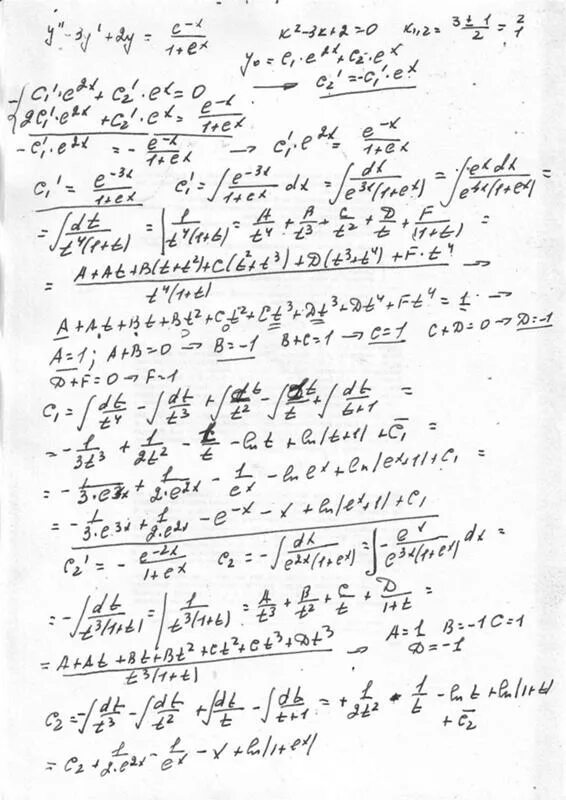 y'' - 3y' + 2y = e^{-x}/(1+e^x)   k² - 3k + 2 = 0   k_{1,2} = (3±1)/2 = 2; 1
y_0 = c_1·e^{2x} + c_2·e^x
{ c_1'·e^{2x} + c_2'·e^x = 0 → c_2' = -c_1'·e^x
2c_1'·e^{2x} + c_2'·e^x = e^{-x}/(1+e^x)
-c_1'·e^{2x} = -e^{-x}/(1+e^x) → c_1'·e^{2x} = e^{-x}/(1+e^x)
c_1' = e^{-3x}/(1+e^x)   c_1' = ∫ e^{-3x}/(1+e^x) dx = ∫ dx/(e^{3x}(1+e^x)) = ∫ e^x dx/(e^{4x}(1+e^x)) =
= ∫ dt/(t⁴(1+t)) = | 1/(t⁴(1+t)) = A/t⁴ + B/t³ + C/t² + D/t + F/(1+t) =
= (A + At + B(t+t²) + C(t²+t³) + D(t³+t⁴) + F·t⁴)/(t⁴(1+t)) →
A + At + Bt + Bt² + Ct² + Ct³ + Dt³ + Dt⁴ + Ft⁴ = 1 →
A=1; A+B=0 → B=-1   B+C=1 → C=1   C+D=0 → D=-1
D+F=0 → F=1
c_1 = ∫ dt/t⁴ - ∫ dt/t³ + ∫ dt/t² - ∫ dt/t + ∫ dt/(t+1) =
= -1/(3t³) + 1/(2t²) - 1/t - ln t + ln|t+1| + c̄_1 =
= -1/(3·e^{3x}) + 1/(2·e^{2x}) - 1/e^x - ln e^x + ln|e^x+1| + c_1 =
= -1/(3·e^{3x}) + 1/(2·e^{2x}) - e^{-x} - x + ln|e^x+1| + c_1
c_2' = -e^{-2x}/(1+e^x)   c_2 = -∫ dx/(e^{2x}(1+e^x)) = ∫ -e^x/(e^{3x}(1+e^x)) dx =
= -∫ dt/(t³(1+t)) = | 1/(t³(1+t)) = A/t³ + B/t² + C/t + D/(1+t) =
= (A + At + Bt + Bt² + Ct² + Ct³ + Dt³)/(t³(1+t)) → A=1 B=-1 C=1 D=-1
c_2 = -∫ dt/t³ - ∫ dt/t² + ∫ dt/t - ∫ dt/(t+1) = + 1/(2t²) - 1/t - ln t + ln|1+t| + c̄_2
= c_2 + 1/(2·e^{2x}) - 1/e^x - x + ln|1+e^x|